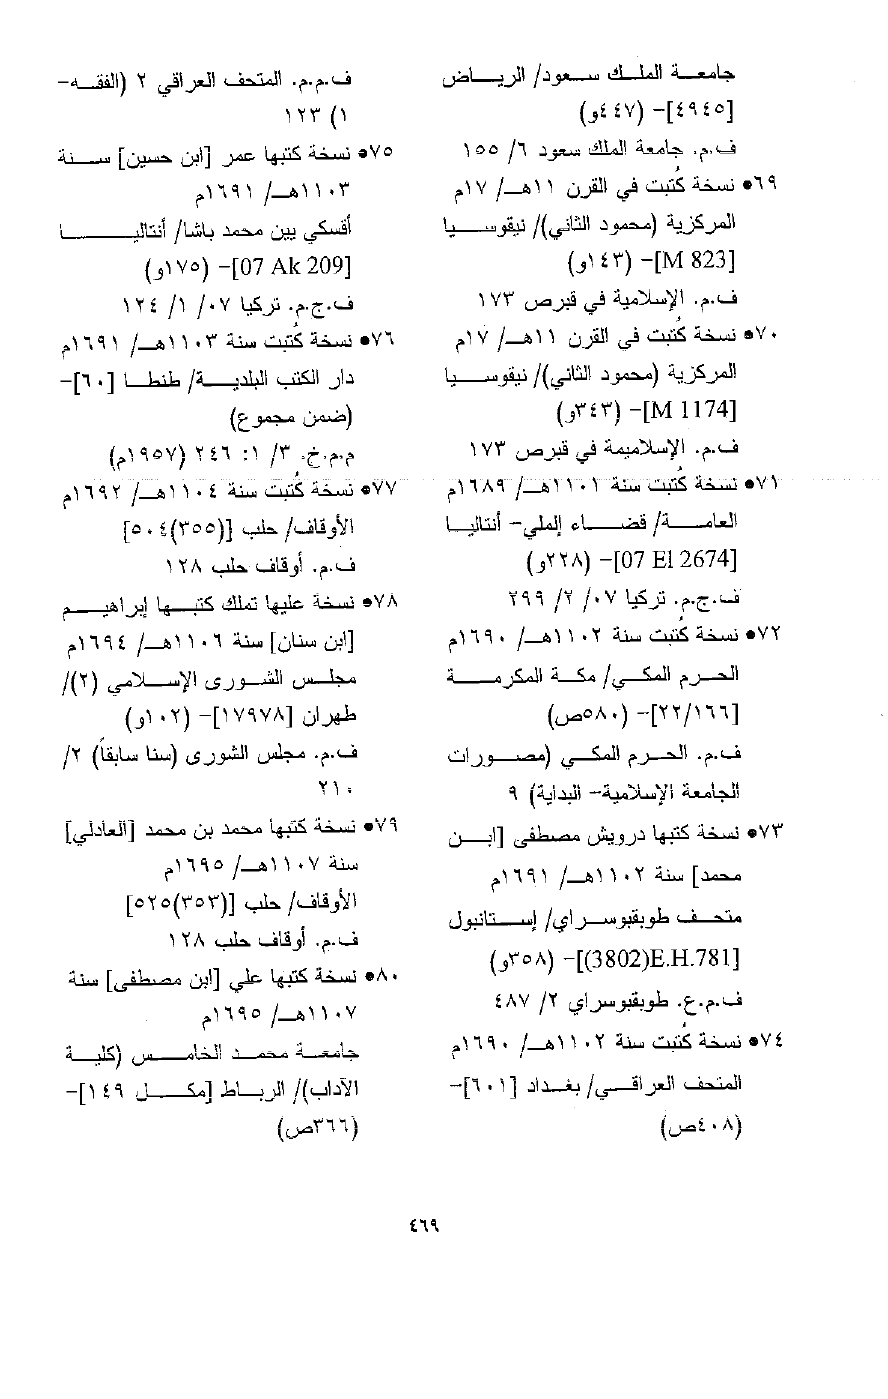 جامعة الملك سعود/ الرياض
[٤٩٤٥]- (٤٤٧و)
ف.م. جامعة الملك سعود ٦/ ١٥٥
•٦٩ نسخة كُتبت في القرن ١١هـ/ ١٧م
المركزية (محمود الثاني)/ نيقوسيا
[M 823]- (١٤٣و)
ف.م. الإسلامية في قبرص ١٧٣
•٧٠ نسخة كُتبت في القرن ١١هـ/ ١٧م
المركزية (محمود الثاني)/ نيقوسيا
[M 1174]- (٣٤٣و)
ف.م. الإسلاميمة في قبرص ١٧٣
•٧١ نسخة كُتبت سنة ١١٠١هـ/ ١٦٨٩م
العامة/ قضاء إلملي- أنتاليا
[07 El 2674]- (٢٢٨و)
ف.ج.م. تركيا ٠٧/ ٢/ ٢٩٩
•٧٢ نسخة كُتبت سنة ١١٠٢هـ/ ١٦٩٠م
الحرم المكي/ مكة المكرمة
[٢٢/١٦٦]- (٥٨٠ص)
ف.م. الحرم المكي (مصورات
الجامعة الإسلامية- البداية) ٩
•٧٣ نسخة كتبها درويش مصطفى [ابن
محمد] سنة ١١٠٢هـ/ ١٦٩١م
متحف طوبقبوسراي/ إستانبول
[(3802)E.H.781]- (٣٥٨و)
ف.م.ع. طوبقبوسراي ٢/ ٤٨٧
•٧٤ نسخة كُتبت سنة ١١٠٢هـ/ ١٦٩٠م
المتحف العراقي/ بغداد [٦٠١]-
(٤٠٨ص)
ف.م.م. المتحف العراقي ٢ (الفقه-
١) ١٢٣
•٧٥ نسخة كتبها عمر [ابن حسين] سنة
١١٠٣هـ/ ١٦٩١م
أفسكي يين محمد باشا/ أنتاليا
[07 Ak 209]- (١٧٥و)
ف.ج.م. تركيا ٠٧/ ١/ ١٢٤
•٧٦ نسخة كُتبت سنة ١١٠٣هـ/ ١٦٩١م
دار الكتب البلدية/ طنطا [٦٠]-
(ضمن مجموع)
م.م.خ. ٣/ ١: ٢٤٦ (١٩٥٧م)
•٧٧ نسخة كُتبت سنة ١١٠٤هـ/ ١٦٩٢م
الأوقاف/ حلب [(٣٥٥)٥٠٤]
ف.م. أوقاف حلب ١٢٨
•٧٨ نسخة عليها تملك كتبها إبراهيم
[ابن سنان] سنة ١١٠٦هـ/ ١٦٩٤م
مجلس الشورى الإسلامي (٢)/
طهران [١٧٩٧٨]- (١٠٢و)
ف.م. مجلس الشورى (سنا سابقاً) ٢/
٢١٠
•٧٩ نسخة كتبها محمد بن محمد [العادلي]
سنة ١١٠٧هـ/ ١٦٩٥م
الأوقاف/ حلب [(٣٥٣)٥٢٥]
ف.م. أوقاف حلب ١٢٨
•٨٠ نسخة كتبها علي [ابن مصطفى] سنة
١١٠٧هـ/ ١٦٩٥م
جامعة محمد الخامس (كلية
الآداب)/ الرباط [مكل ١٤٩]-
(٣٦٦ص)
٤٦٩